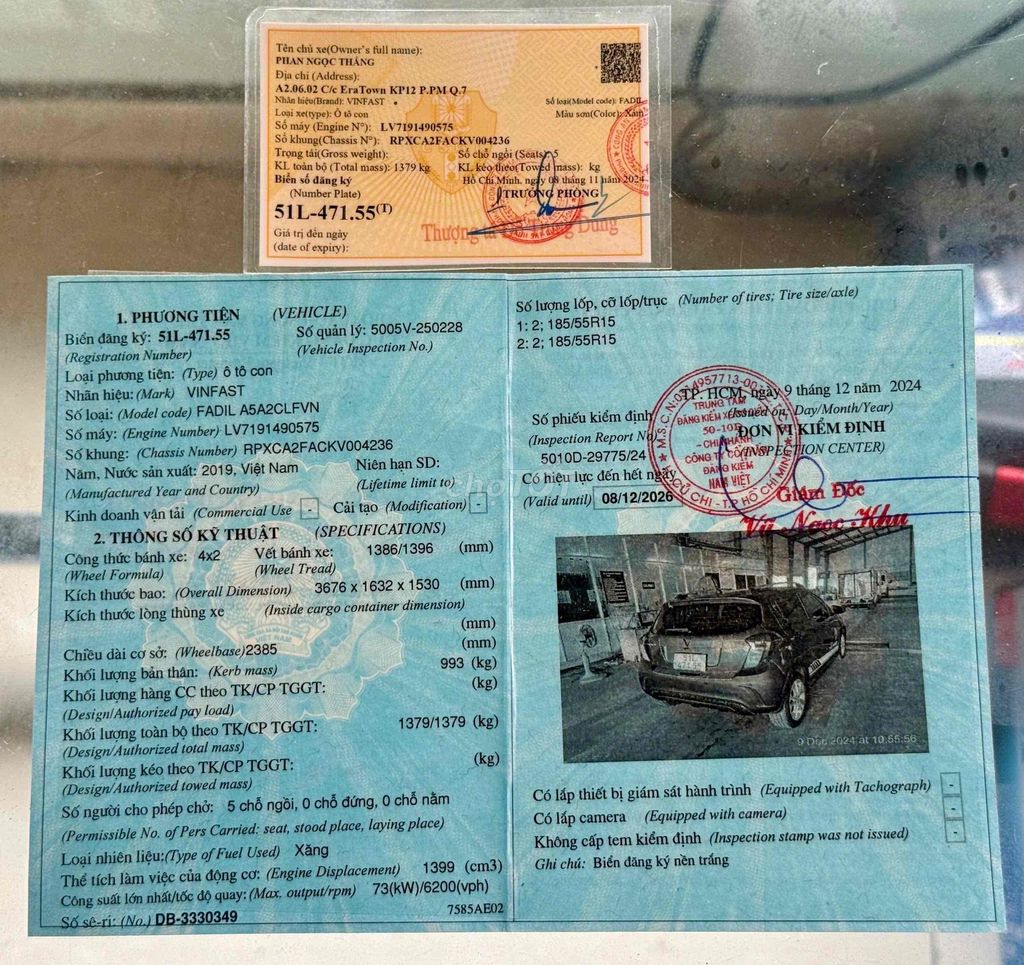 Tên chủ xe(Owner's full name):
PHAN NGỌC THẮNG
Địa chỉ (Address):
A2.06.02 C/c EraTown KP12 P.PM Q.7
Nhãn hiệu(Brand): VINFAST
Số loại(Model code): FADIL
Loại xe(type): Ô tô con
Màu sơn(Color): Xám
Số máy (Engine N°): LV7191490575
Số khung(Chassis N°): RPXCA2FACKV004236
Trọng tải(Gross weight):
Số chỗ ngồi (Seats): 5
KL toàn bộ (Total mass): 1379 kg
KL kéo theo(Towed mass): kg
Biển số đăng ký
Hồ Chí Minh, ngày 08 tháng 11 năm 2024
(Number Plate)
TRƯỞNG PHÒNG
51L-471.55(T)
Giá trị đến ngày
Thượng tá
Dũng
(date of expiry):
1. PHƯƠNG TIỆN (VEHICLE)
Biển đăng ký: 51L-471.55
Số quản lý: 5005V-250228
(Registration Number)
(Vehicle Inspection No.)
Loại phương tiện: (Type) ô tô con
Nhãn hiệu: (Mark) VINFAST
Số loại: (Model code) FADIL A5A2CLFVN
Số máy: (Engine Number) LV7191490575
Số khung: (Chassis Number) RPXCA2FACKV004236
Năm, Nước sản xuất: 2019, Việt Nam
Niên hạn SD:
(Manufactured Year and Country)
(Lifetime limit to)
Kinh doanh vận tải (Commercial Use -
Cải tạo (Modification) -
2. THÔNG SỐ KỸ THUẬT (SPECIFICATIONS)
Công thức bánh xe: 4x2
Vết bánh xe: 1386/1396 (mm)
(Wheel Formula)
(Wheel Tread)
Kích thước bao: (Overall Dimension) 3676 x 1632 x 1530 (mm)
Kích thước lòng thùng xe (Inside cargo container dimension)
(mm)
Chiều dài cơ sở: (Wheelbase)2385 (mm)
Khối lượng bản thân: (Kerb mass) 993 (kg)
Khối lượng hàng CC theo TK/CP TGGT: (kg)
(Design/Authorized pay load)
Khối lượng toàn bộ theo TK/CP TGGT: 1379/1379 (kg)
(Design/Authorized total mass)
Khối lượng kéo theo TK/CP TGGT: (kg)
(Design/Authorized towed mass)
Số người cho phép chở: 5 chỗ ngồi, 0 chỗ đứng, 0 chỗ nằm
(Permissible No. of Pers Carried: seat, stood place, laying place)
Loại nhiên liệu:(Type of Fuel Used) Xăng
Thể tích làm việc của động cơ: (Engine Displacement) 1399 (cm3)
Công suất lớn nhất/tốc độ quay: (Max. output/rpm) 73(kW)/6200(vph)
Số sê-ri: (No.) DB-3330349
7585AE02
Số lượng lốp, cỡ lốp/trục (Number of tires; Tire size/axle)
1: 2; 185/55R15
2: 2; 185/55R15
TP. HCM, ngày 9 tháng 12 năm 2024
Số phiếu kiểm định
(Issued on: Day/Month/Year)
(Inspection Report No)
ĐƠN VỊ KIỂM ĐỊNH
5010D-29775/24
(INSPECTION CENTER)
Có hiệu lực đến hết ngày
(Valid until) 08/12/2026
TRUNG TÂM
ĐĂNG KIỂM XE
50-10D
- CHI NHÁNH
CÔNG TY CỔ PHẦN
ĐĂNG KIỂM
NAM VIỆT
CỦ CHI - T.P HỒ CHÍ MINH
Giám Đốc
Vũ Ngọc Khu
51L
471.55
9 Dec 2024 at 10:55:56
Có lắp thiết bị giám sát hành trình (Equipped with Tachograph) -
Có lắp camera (Equipped with camera) -
Không cấp tem kiểm định (Inspection stamp was not issued) -
Ghi chú: Biển đăng ký nền trắng